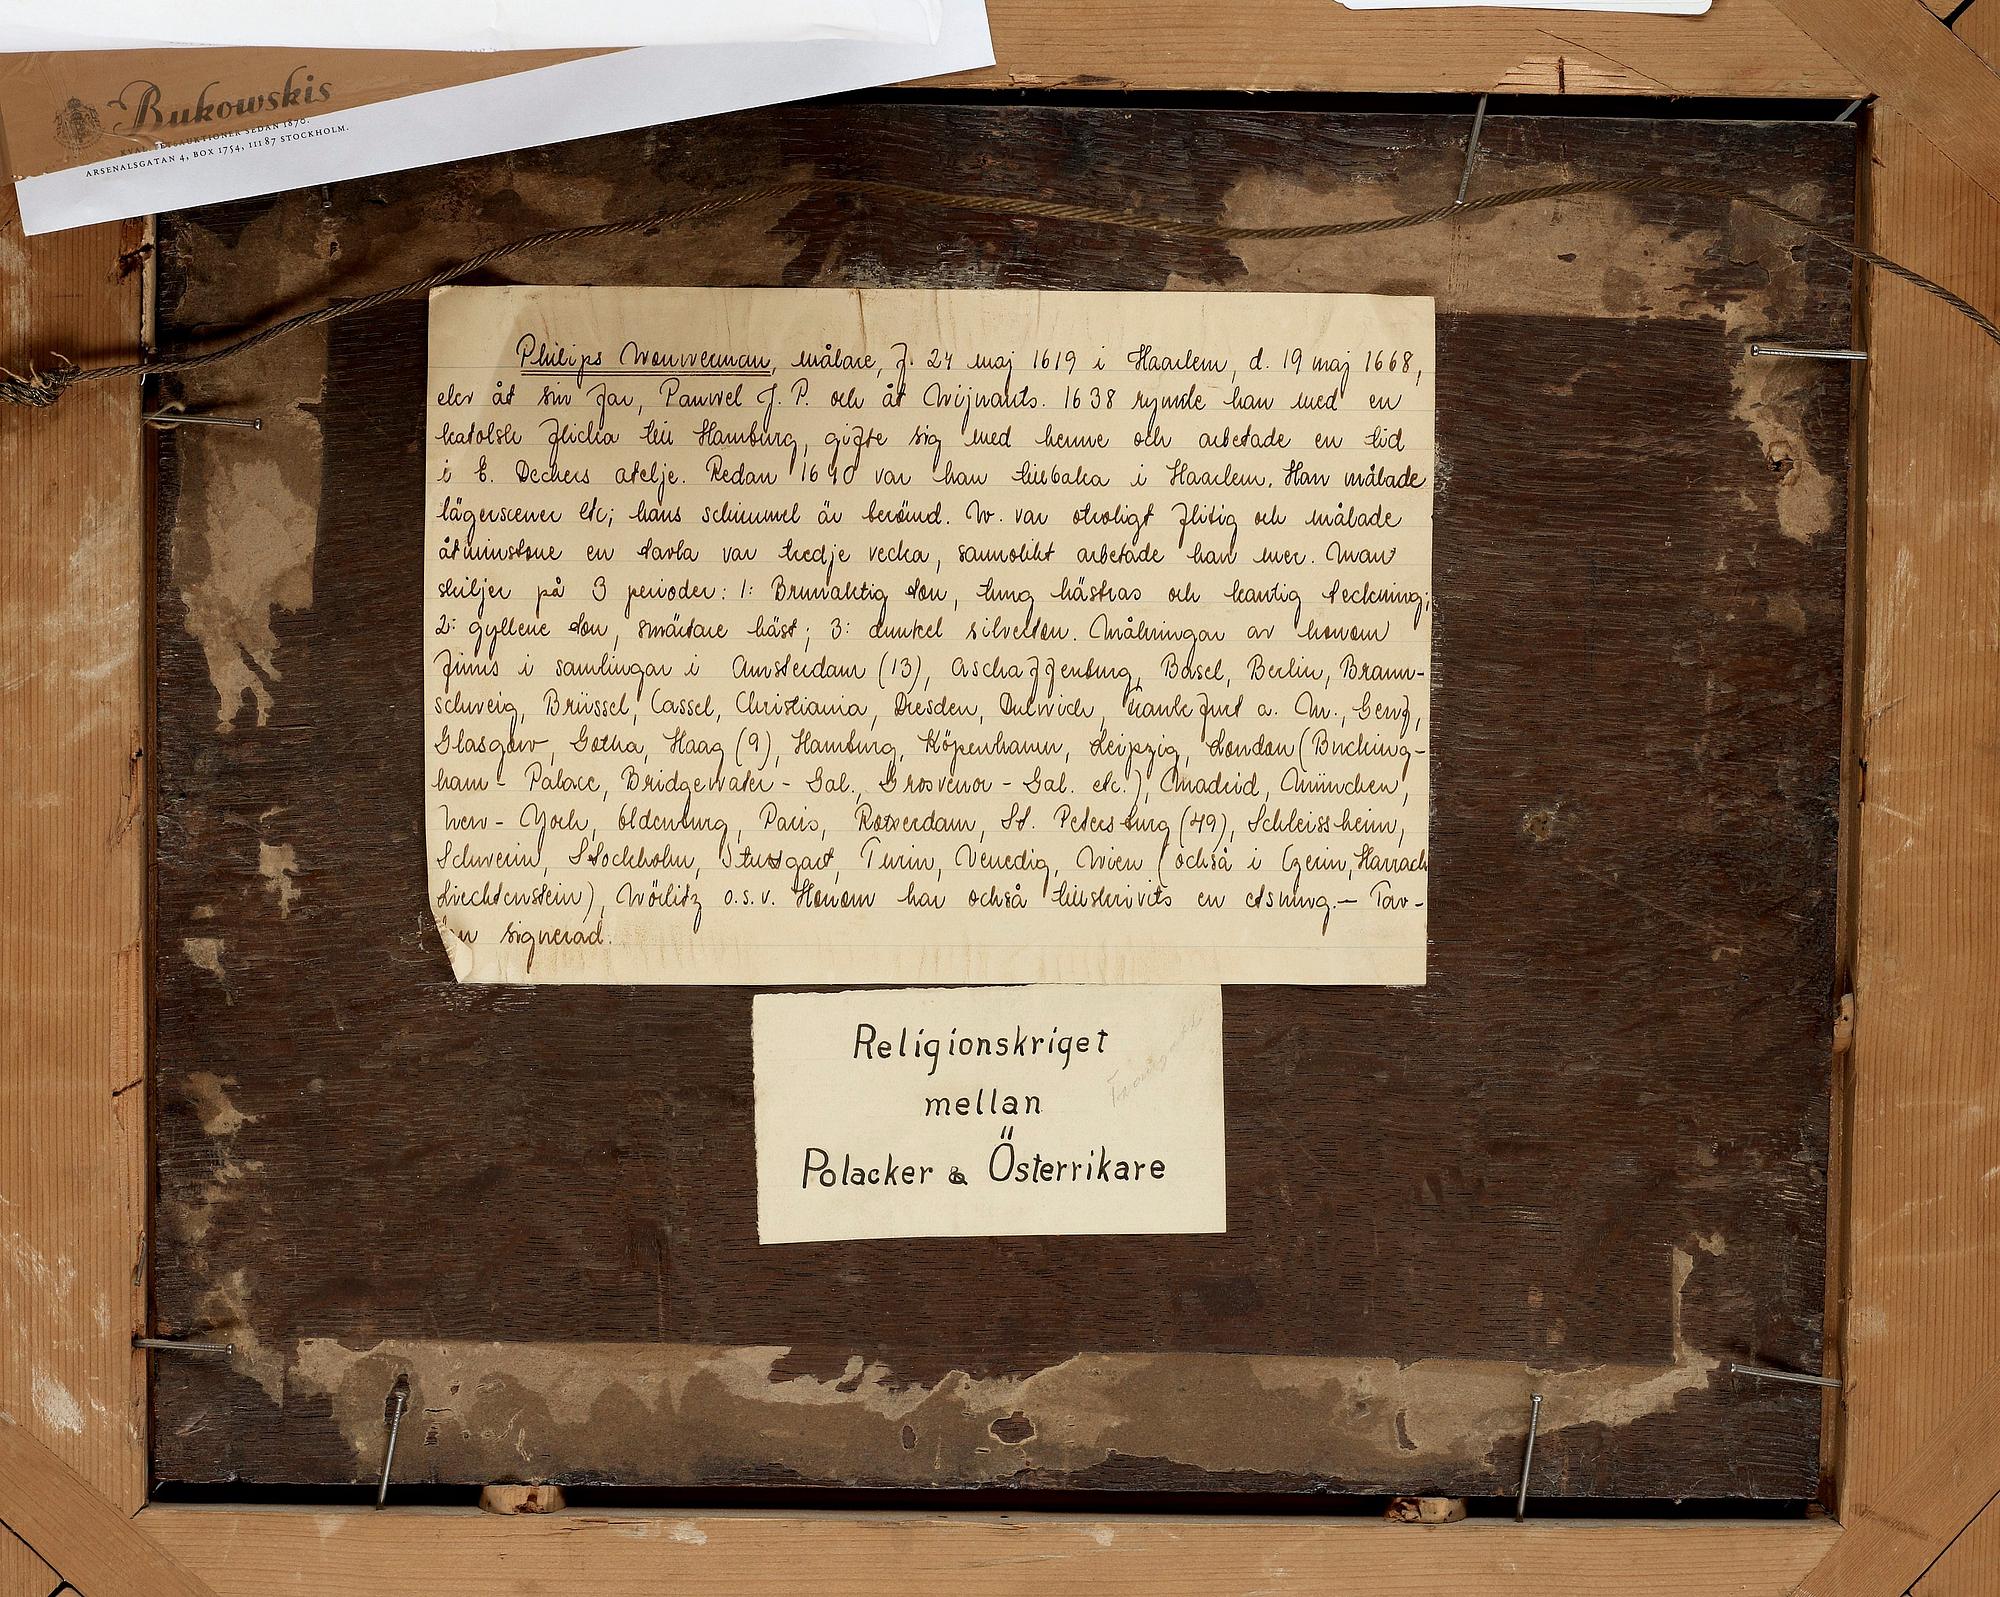 Bukowskis
AUKTIONER SEDAN 1870.
ARSENALSGATAN 4, BOX 1754, 111 87 STOCKHOLM.
Philips Wouwerman, målare, f. 24 maj 1619 i Haarlem, d. 19 maj 1668,
elev åt sin far, Pauwel J. P. och åt Wijnants. 1638 rymde han med en
katolsk flicka till Hamburg, gifte sig med henne och arbetade en tid
i E. Deckers ateljé. Redan 1640 var han tillbaka i Haarlem. Han målade
lägerscener etc; hans schimmel är berömd. W. var otroligt flitig och målade
åtminstone en tavla var tredje vecka, sannolikt arbetade han mer. Man
skiljer på 3 perioder: 1: Brunaktig ton, tung hästras och kantig teckning;
2: gyllene ton, smärtare häst; 3: dunkel silverton. Målningar av honom
finns i samlingar i Amsterdam (13), Aschaffenburg, Basel, Berlin, Braun-
schweig, Brüssel, Cassel, Christiania, Dresden, Dulwich, Frankfurt a. M., Genf,
Glasgow, Gotha, Haag (9), Hamburg, Köpenhamn, Leipzig, London (Bucking-
ham - Palace, Bridgewater - Gal., Grosvenor - Gal. etc.), Madrid, München,
New - York, Oldenburg, Paris, Rotterdam, St. Petersburg (49), Schleissheim,
Schwerin, Stockholm, Stuttgart, Turin, Venedig, Wien (också i Czerin, Harrach
Liechtenstein), Wörlitz o.s.v. Honom har också tillskrivits en etsning. — Tav-
signerad.
Religionskriget
mellan
Polacker & Österrikare